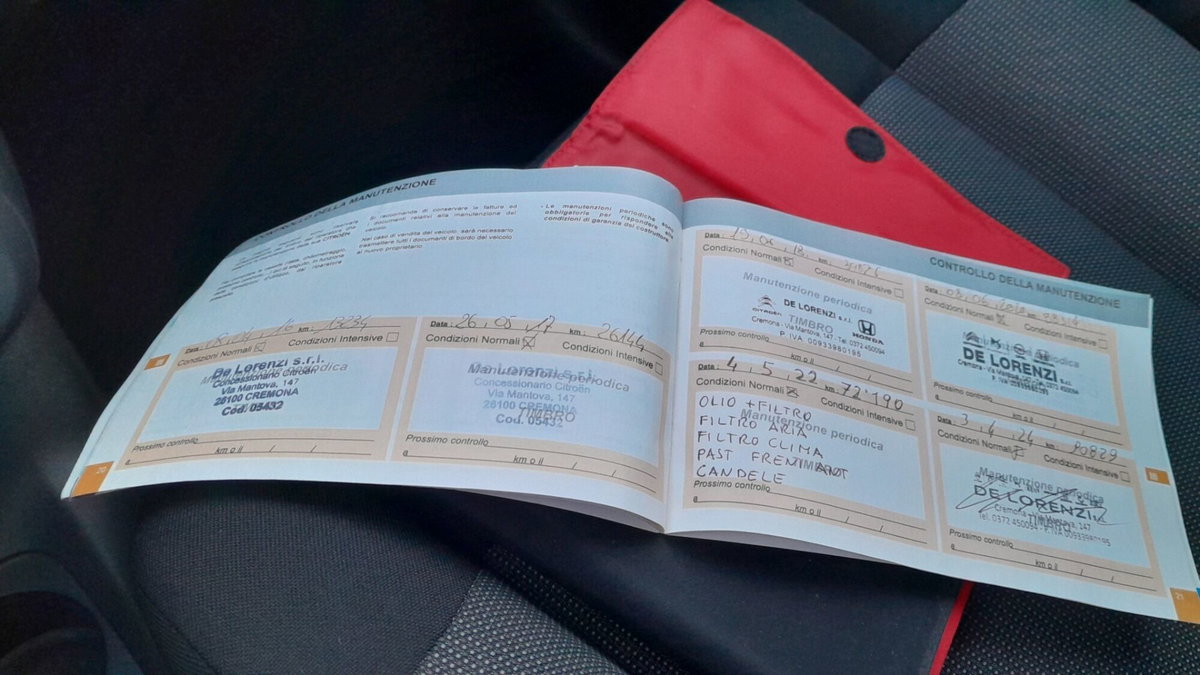 CONTROLLO DELLA MANUTENZIONE
Si raccomanda di conservare le fatture ed
i documenti relativi alla manutenzione del
veicolo.
Nel caso di vendita del veicolo, sarà necessario
trasmettere tutti i documenti di bordo del veicolo
al nuovo proprietario.
- Le manutenzioni periodiche sono
obbligatorie per rispondere alle
condizioni di garanzia del costruttore.
16 km: 13234
Condizioni Normali Condizioni Intensive
De Lorenzi s.r.l.
Manutenzione periodica
Concessionario Citroën
Via Mantova, 147
26100 CREMONA
Cod. 05432
Prossimo controllo
km o il / /
20
Data: 26.05.17 km: 26144
Condizioni Normali Condizioni Intensive
Manutenzione periodica
Concessionario Citroën
Via Mantova, 147
26100 CREMONA
TIMBRO
Cod. 05432
Prossimo controllo
a km o il / /
CONTROLLO DELLA MANUTENZIONE
Data: 19.06.18 km:
Condizioni Normali Condizioni Intensive
Manutenzione periodica
DE LORENZI s.r.l.
CITROËN TIMBRO HONDA
Cremona - Via Mantova, 147 - Tel. 0372 450094
P. IVA 00933980195
Prossimo controllo
a km o il / /
Data: 4.5.22 km: 72'190
Condizioni Normali Condizioni Intensive
Manutenzione periodica
OLIO + FILTRO
FILTRO ARIA
FILTRO CLIMA
PAST FRENI ANT
TIMBRO
CANDELE
Prossimo controllo
a km o il / /
Data: 03.06.2020 km:
Condizioni Normali Condizioni Intensive
Manutenzione periodica
DE LORENZI s.r.l.
Prossimo controllo
a km o il / /
Data: 3.4.24 km: 90829
Condizioni Normali Condizioni Intensive
Manutenzione periodica
DE LORENZI s.r.l.
Cremona - Via Mantova, 147
TIMBRO
Tel. 0372 450094 - P. IVA 00933980195
Prossimo controllo
a km o il / /
21